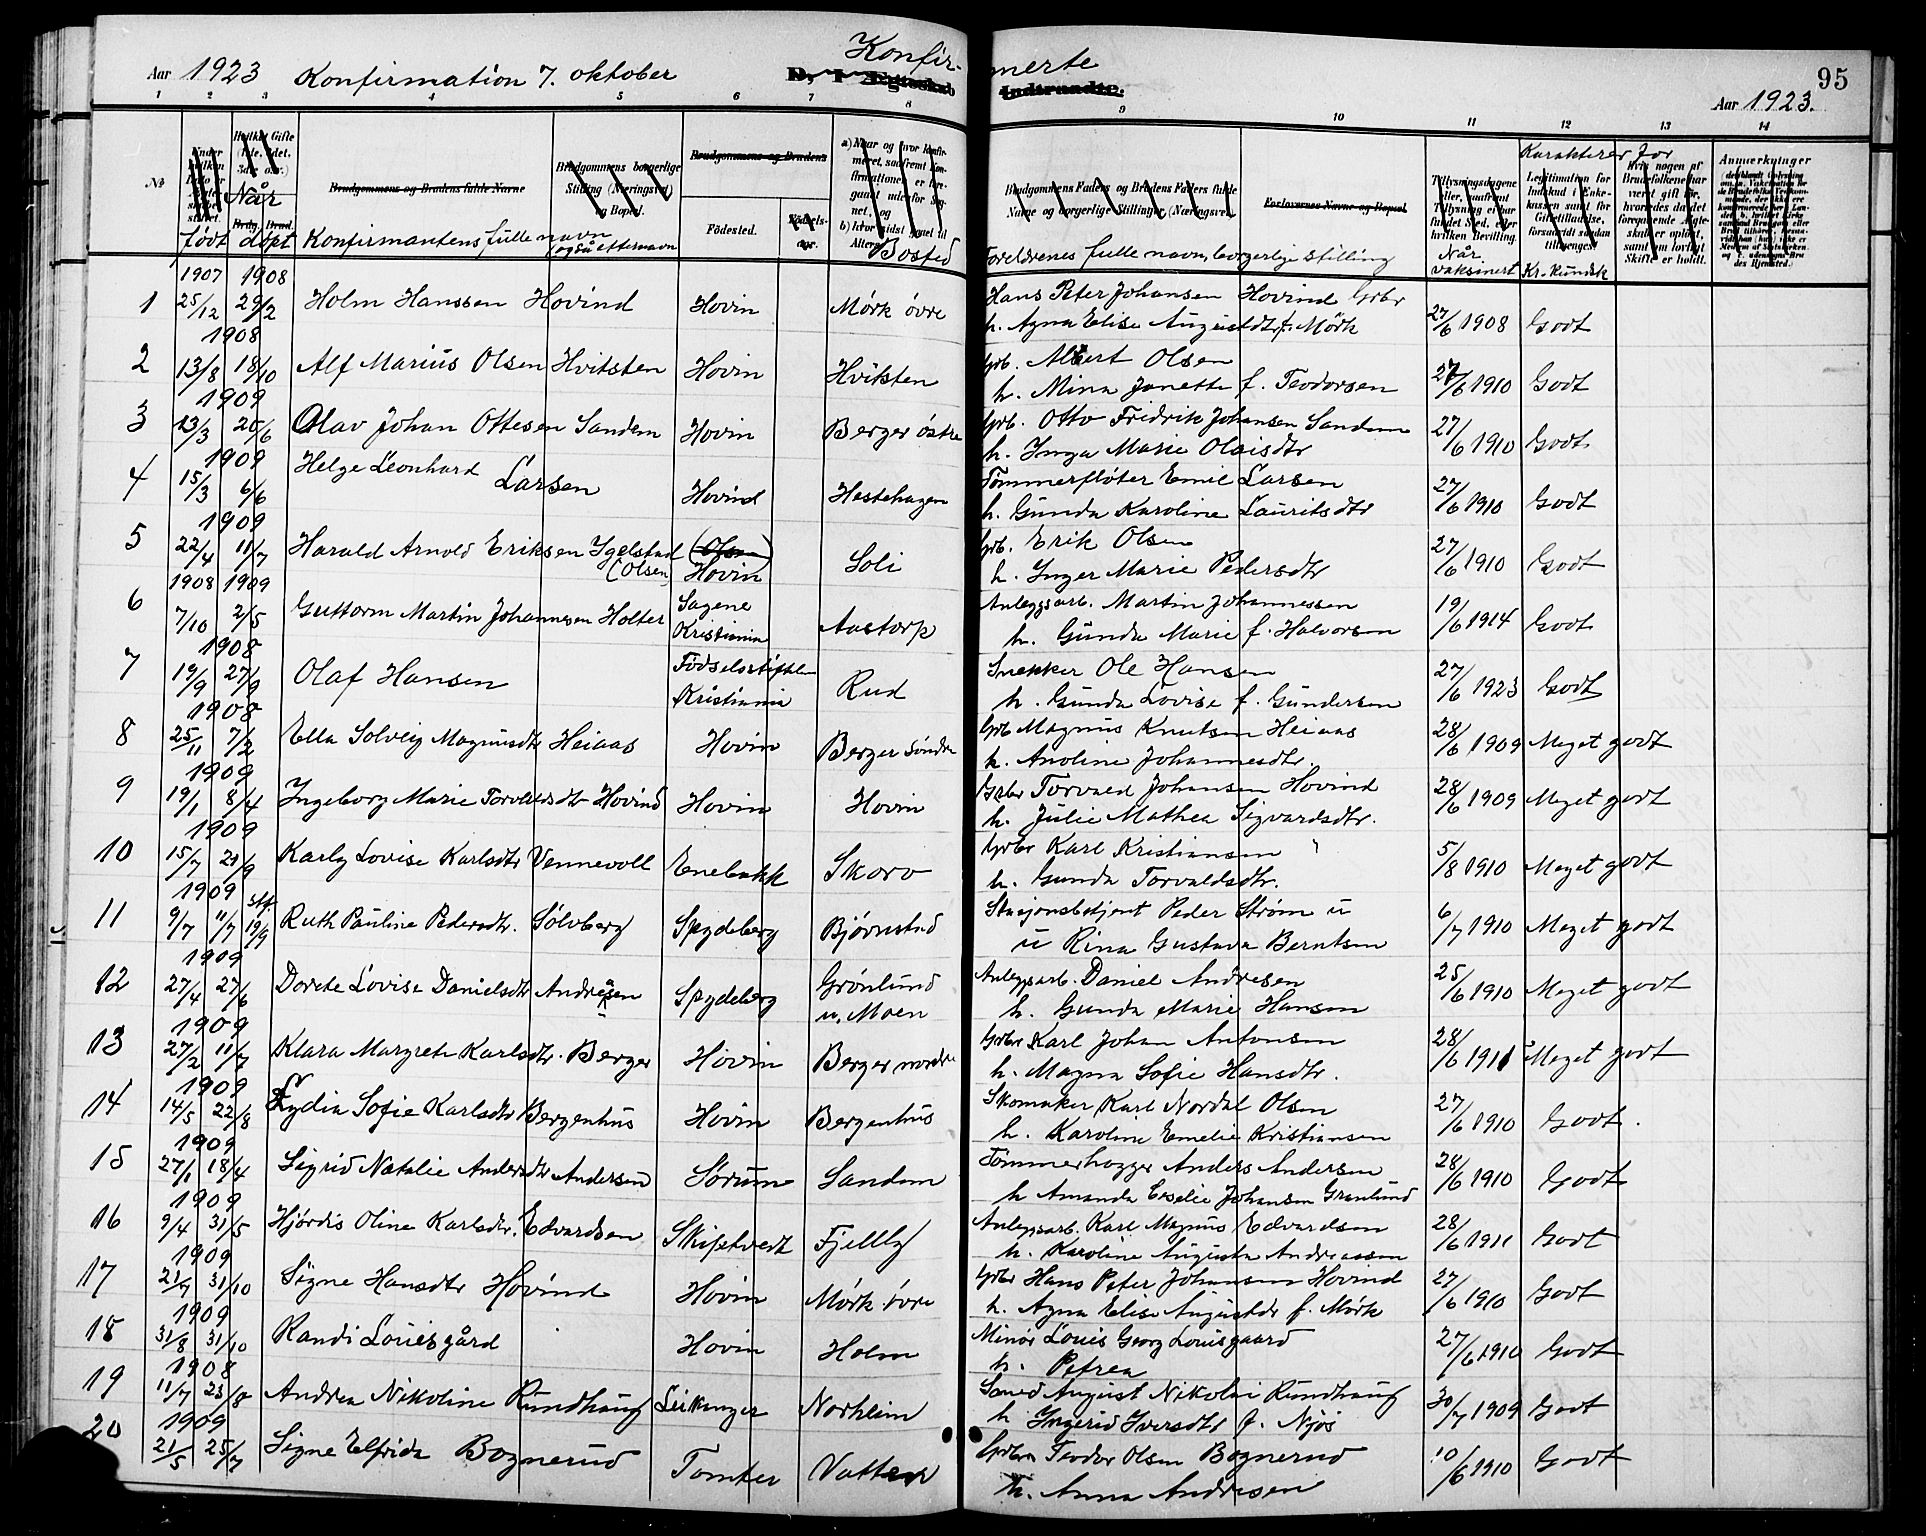 Aar 1923 Konfirmation 7. oktober Konfir- merte 95
Aar 1923.
1 2 3 4 5 6 7 8 9 10 11 12 13 14
No.
Brudgommens og Brudens fulde Navne
Brudgommens borgerlige Stilling (Næringsvei) og Bopæl.
Brudgommens og Brudens
Fødested.
Fødsels-aar.
Brudgommens Faders og Brudens Faders fulde Navne og borgerlige Stillinger (Næringsvei)
Forlovernes Navne og Bopæl
Karakterer for
Når
født døpt Konfirmantens fulle navn også etternavn Bosted Foreldrenes fulle navn, borgerlige stilling Når vaksinert Kr. kundsk
1907 1908
1 25/12 29/2 Holm Hanssen Hovind Hovin Mørk øvre Hans Peter Johansen Hovind Grbr
h. Agna Elise Augustdtr f. Mørk 27/6 1908 Godt
1908
2 13/8 18/10 Alf Marius Olsen Hvitsten Hovin Hvitsten Grb. Albert Olsen
h. Mina Janette f. Teodorsen 27/6 1910 Godt
1909
3 13/3 20/6 Olav Johan Ottesen Sandem Hovin Berger østre Grb. Otto Fridrik Johansen Sandem
h. Inga Marie Olaisdtr 27/6 1910 Godt
1909
4 15/3 6/6 Helge Leonhard Larsen Hovind Hestehagen Tømmerfløter Emil Larsen
h. Gunda Karoline Lauritsdtr 27/6 1910 Godt
1909
5 22/4 11/7 Harald Arnold Eriksen Igelstad (Olsen) (Olsen) Hovin Soli Grb. Erik Olsen
h. Inger Marie Pedersdtr 27/6 1910 Godt
1908 1909
6 7/10 2/5 Guttorm Martin Johannesen Holter Sagene Kristiania Aastorp Anleggsarb. Martin Johannessen
h. Gunda Marie f. Halvorsen 19/6 1914 Godt
1908
7 19/9 27/9 Olaf Hansen Fødselsstiftelsen Kristiania Rud Snekker Ole Hansen
h. Gunda Lovise f. Gundersen 27/6 1923 Godt
1908
8 25/11 7/2 Ella Solveig Magnusdtr Heiaas Hovin Berger søndre Grb Magnus Knutsen Heiaas
h. Anoline Johannesdtr. 28/6 1909 Meget godt
1909
9 19/1 8/4 Ingeborg Marie Torvaldsdtr Hovind Hovin Hovin Grbr Torvald Johansen Hovind
h. Julie Mathea Sigvardsdtr. 28/6 1909 Meget godt
1909
10 15/7 21/9 Karly Lovise Karlsdtr Vennevoll Enebakk Skoro Grbr Karl Kristiansen
h. Gunda Torvaldsdtr. 5/8 1910 Meget godt
1909
11 9/7 11/7 stf. 19/9 Ruth Pauline Pedersdtr. Sølvberg Spydeberg Bjørnstad Stasjonsbetjent Peder Strøm u
u Rina Gustava Berntsen 6/7 1910 Meget godt
1909
12 27/4 27/6 Dorete Lovise Danielsdtr Andresen Spydeberg Grønlund u. Moen Anleggsarb. Daniel Andresen
h. Gunda Marie Hansen 25/6 1910 Meget godt
1909
13 27/2 11/7 Klara Margrete Karlsdtr. Berger Hovin Berger nordre Grbr Karl Johan Antonsen
h. Magna Sofie Hansdtr. 28/6 1911 Meget godt
1909
14 14/5 22/8 Lydia Sofie Karlsdtr Bergenhus Hovin Bergenhus Skomaker Karl Nordal Olsen
h. Karoline Emelie Kristiansen 27/6 1910 Godt.
1909
15 27/1 18/4 Sigrid Natalie Andersdtr Andersen Sørum Sandem Tømmerhogger Anders Andersen
h Amanda Eselie Johansen Granlund 28/6 1910 Godt
1909
16 9/4 31/5 Hjørdis Oline Karlsdtr. Edvardsen Skiptvedt Fjellly Anleggsarb. Karl Magnus Edvardsen
h. Karoline Augusta Andreassen 28/6 1911 Godt
1909
17 21/7 31/10 Signe Hansdtr Hovind Hovin Mørk øvre Grbr Hans Peter Johansen Hovind
h. Agna Elise Augustdr f. Mørk 27/6 1910 Godt
1909
18 31/8 31/10 Randi Louisgård Hovin Holm Minør Louis Georg Louisgaard
h. Petrea 27/6 1910 Godt
1908
19 11/7 23/8 Andrea Nikoline Rundhaug Leikanger Norheim Smed August Nikolai Rundhaug
h Ingerid Iversdtr f. Njøs 30/7 1909 Godt
1909
20 21/5 25/7 Signe Elfrida Bognerud Tomter Vatter Grbr Teodor Olsen Bognerud
h. Anna Andresen 10/6 1910 Godt